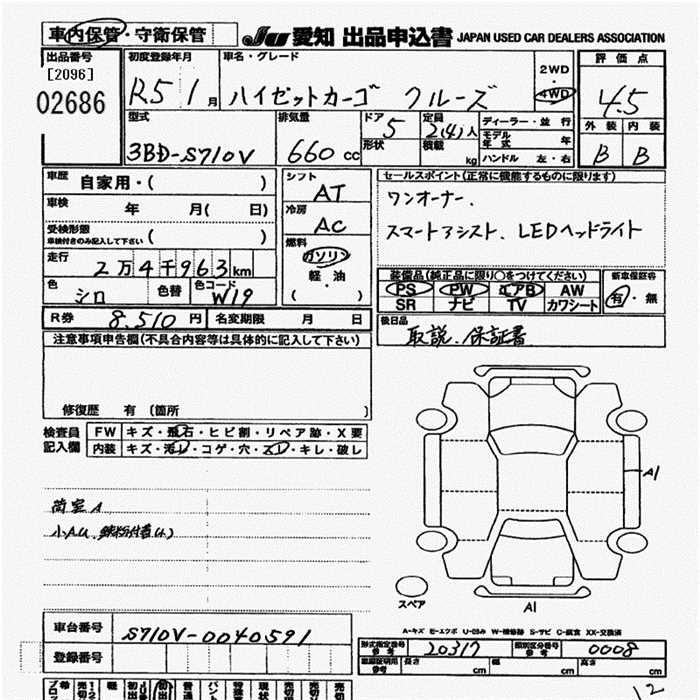 車内保管・守衛保管
JU 愛知 出品申込書 JAPAN USED CAR DEALERS ASSOCIATION
出品番号
[2096]
02686
初度登録年月
R5 1月
車名・グレード
ハイゼットカーゴ クルーズ
2WD
4WD
評価点
4.5
外装 内装
B B
型式
3BD-S710V
排気量
660 cc
ドア
5
形状
定員
2(4)人
積載
kg
ディーラー・並行
モデル年式 年
ハンドル 左・右
車歴
自家用・( )
車検
年 月( 日)
受検形態
車検付きのみ記入して下さい ( )
走行
2万4千963km
色
シロ
色替
色コード
W19
シフト
AT
冷房
AC
燃料
ガソリン
軽・油
( )
セールスポイント(正常に機能するものに限ります)
ワンオーナー、
スマートアシスト、LEDヘッドライト
装備品(純正品に限り〇をつけてください)
PS PW エアB AW
SR ナビ TV カワシート
新車保証書
有・無
R券 8,510円
名変期限 月 日
後日品
取説、保証書
注意事項申告欄(不具合内容等は具体的に記入して下さい)
修復歴 有〔箇所 〕
検査員
記入欄
FW キズ・飛石・ヒビ割・リペア跡・X要
内装 キズ・汚レ・コゲ・穴・スレ・キレ・破レ
荷室A
A1
スペア
A1
A-キズ E-エクボ U-凹み W-補修跡 S-サビ C-腐食 XX-交換済
車台番号 S710V-0040591
登録番号
型式指定番号 20317
類別区分番号 0008
参考 長さ cm 幅 cm 高さ cm
12